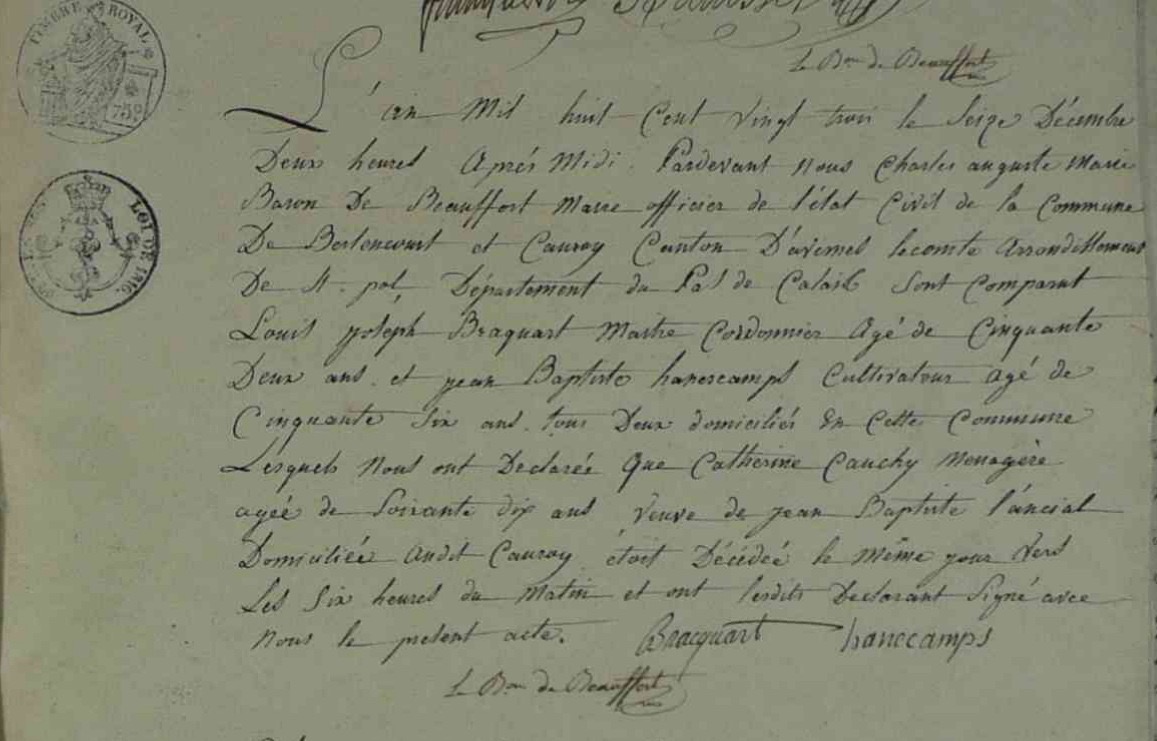 TIMBRE ROYAL
75
LOI DE 1816.
Le Bon de Beauffort
L'an Mil huit Cent Vingt trois le Seize Décembre
Deux heures Après Midi. Pardevant Nous Charles auguste Marie
Baron De Beauffort Maire officier de l'état Civil de la Commune
De Berlencourt et Cauroy Canton D'avesnes lecomte Arrondissement
De St. pol, Département du Pas de Calais Sont Comparut
Louis joseph Braquart Maitre Cordonnier Agé de Cinquante
Deux ans. et jean Baptiste hanescamps Cultivateur agé de
Cinquante Six ans. tous Deux domiciliés En Cette Commune
Lésquels Nous ont Declarée Que Catherine Cauchy Menagère
agée de Soixante dix ans Veuve de jean Baptiste l'ancial
Domiciliée Audit Cauroy étoit Décédée le Même jour Vers
Les Six heures du Matin et ont lesdits Declarant Signé avec
Nous le présent acte. Bracquart hanecamps
Le Bon de Beauffort